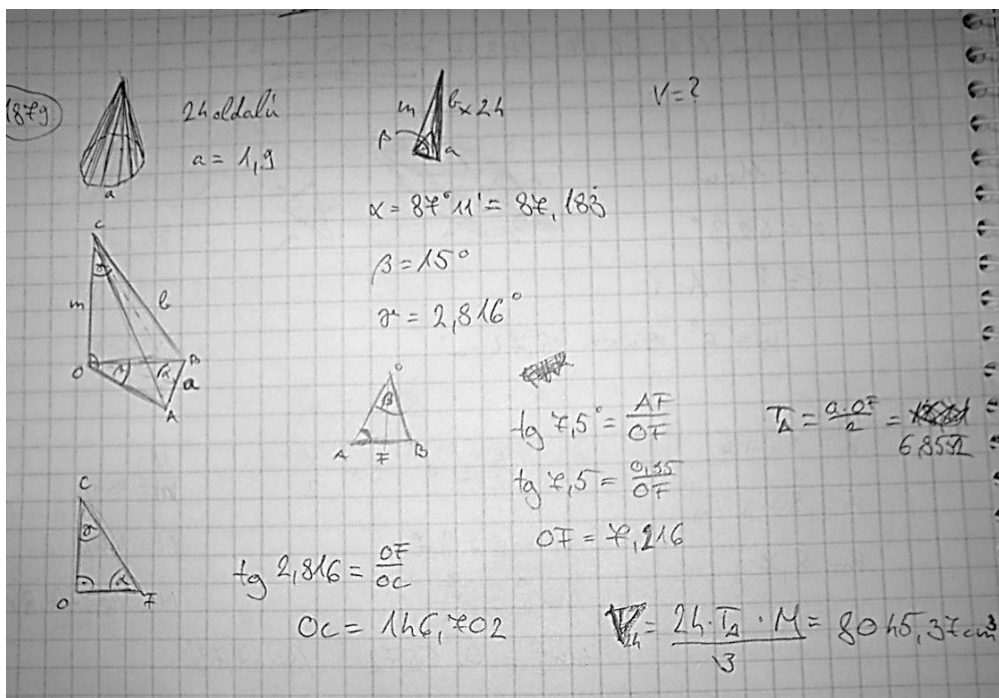 1879
24 oldalú
a = 1,9
a
m b x24
β a
V=?
α = 87°11' = 87,183
β = 15°
γ = 2,816°
C
γ
m b
O β α B
a
A
O
β
A F B
tg 7,5° = AF/OF
tg 7,5 = 0,95/OF
OF = 7,216
T△ = a·OF/2 = 6,8552
C
γ
α
O F
tg 2,816 = OF/OC
OC = 146,702
V24 = 24·T△·M/3 = 8045,37cm³